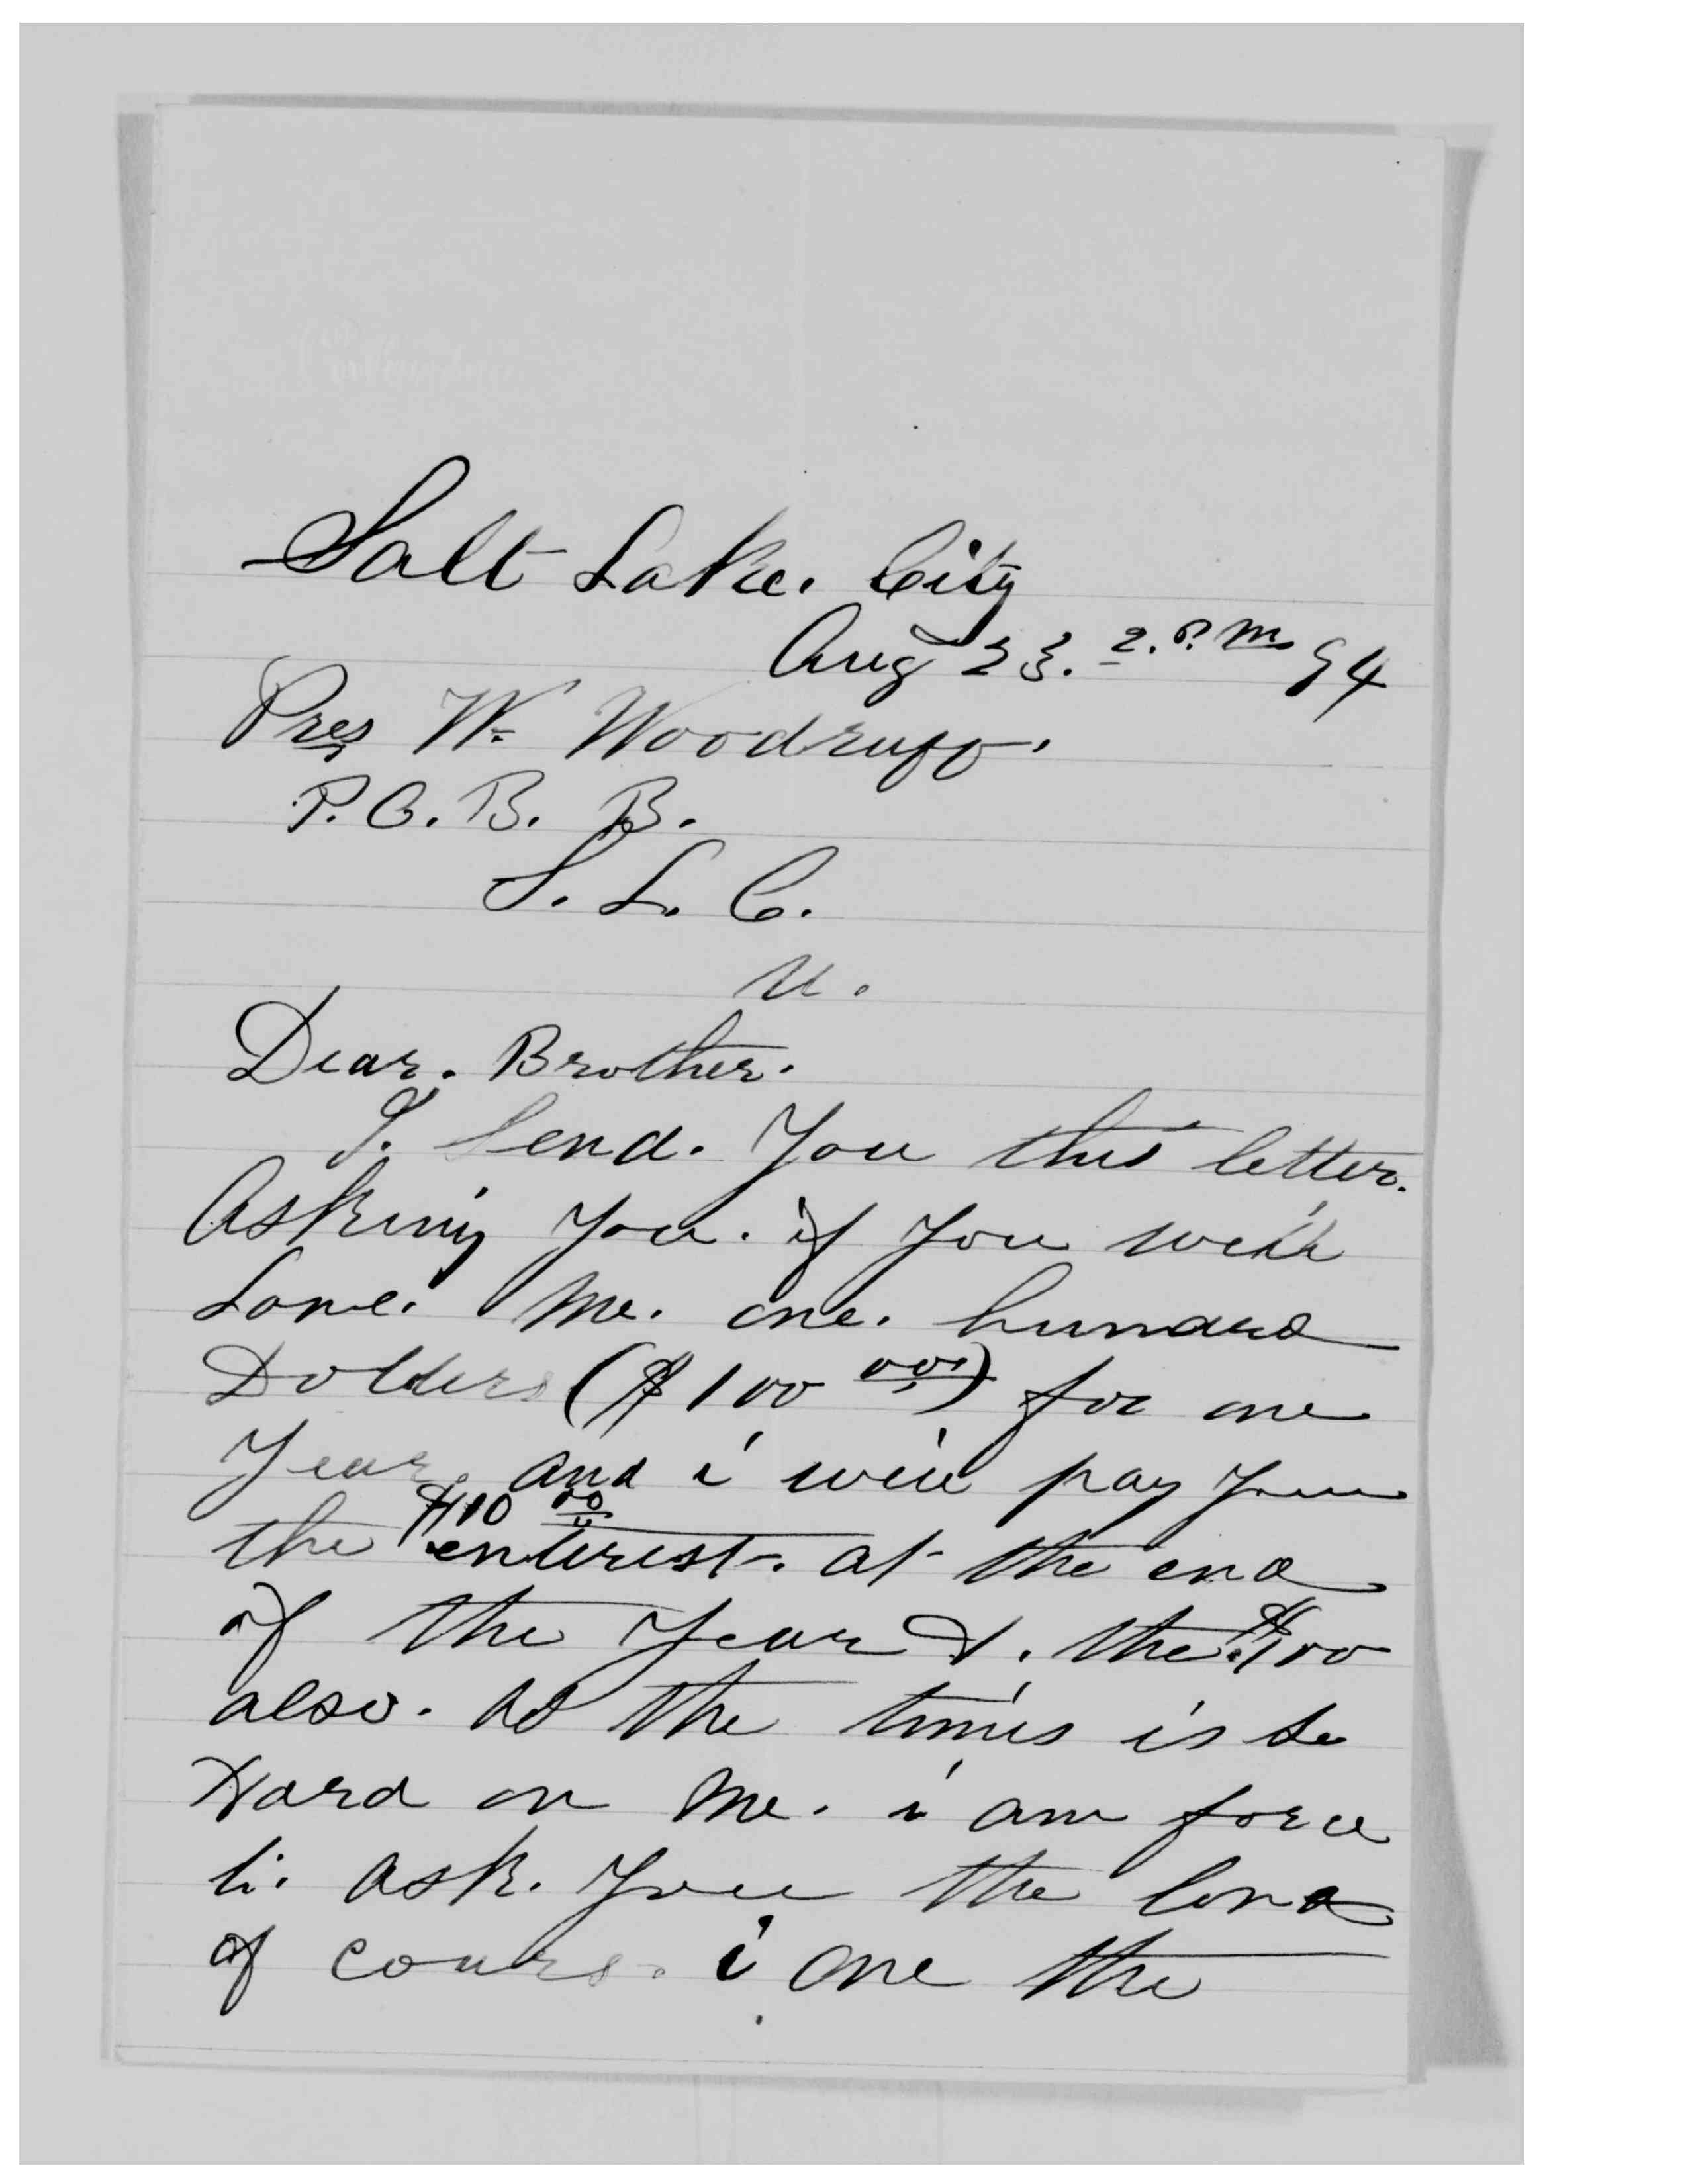 Salt Lake. City
Aug 23. 2. P. M 94
Pres Wm Woodruff.
P. O. B. B.
S. L. C.
U.
Dear. Brother.
I. Send. You this letter.
Asking You. if You will
Lone. Me. one. hundred
Dollers ($100 00) for one
Year. and i will pay You
the $10 00 enterest. at the end
of the Year &. the $100
also. as the times is so
Hard on Me. i am force
to. ask. You the lone
of cours. i one the